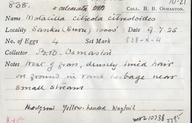 10-21
COLL. B. B. OSMASTON.
Name Motacilla citreola citreoloides
Locality Sanku (Suru) Date 9.7.25
No. of Eggs 4 Set Mark
Collector B. B. Osmaston
Nest of grass, densely lined hair
on ground in rank herbage near
small stream
Hodgson's Yellow-headed Wagtail